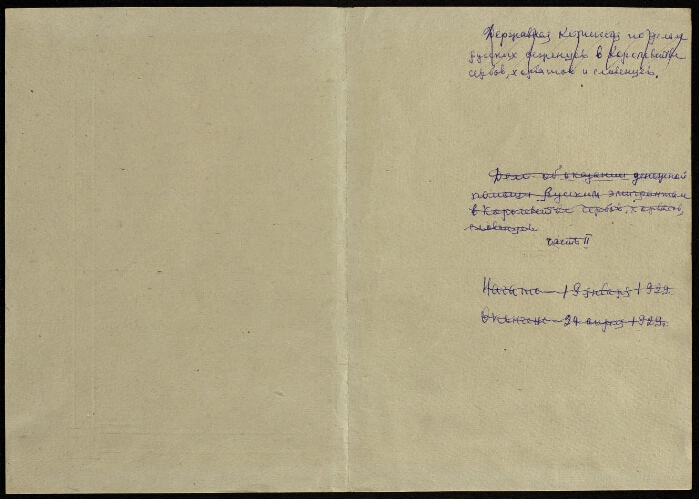 Державная Комиссия по делам
русских беженцев в Королевстве
сербов, хорватов и словенцев.
Дело об оказании денежной
помощи Русским эмигрантам
в Королевстве Сербов, хорватов,
словенцев
часть II
Начато — 19 января 1922.
Окончено — 24 апреля 1922.